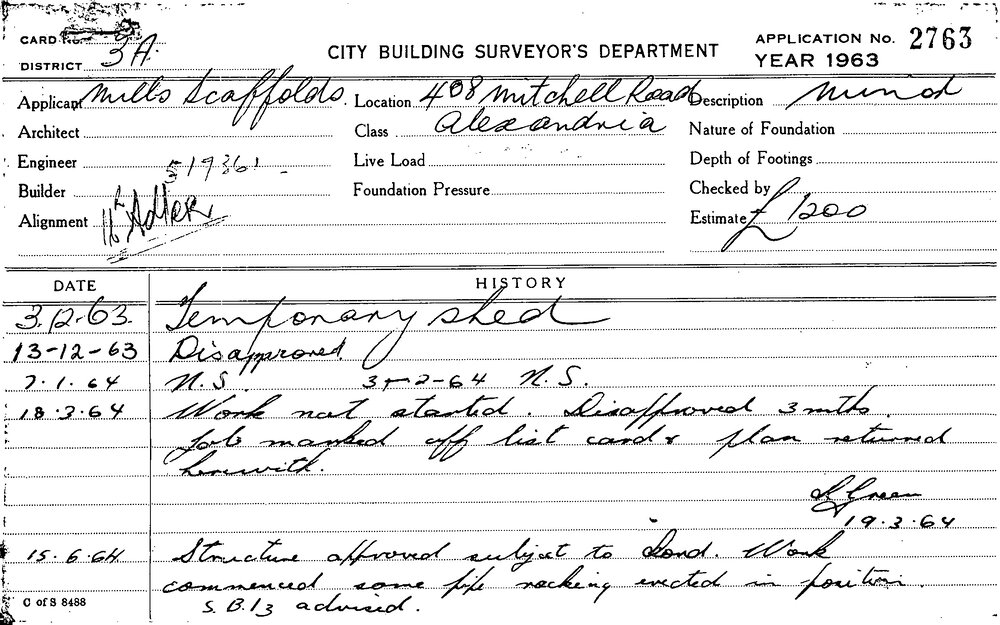 CARD No.
DISTRICT 3A.
CITY BUILDING SURVEYOR'S DEPARTMENT
APPLICATION No. 2763
YEAR 1963
Applicant Mills Scaffolds. Location 408 Mitchell Road Description Minor
Architect Class Alexandria Nature of Foundation
Engineer 5193 Live Load Depth of Footings
Builder Foundation Pressure Checked by
Alignment Adler Estimate £1200
DATE HISTORY
3.12.63. Temporary shed
13-12-63 Disapproved
7.1.64 N.S. 3-2-64 N.S.
18.3.64 Work not started. Disapproved 3 mths.
Job marked off list card & plan returned
herewith.
Green
19.3.64
15.6.64 Structure approved subject to Cond. Work
commenced some pipe racking erected in position.
S.B.13 advised.
C of S 8488